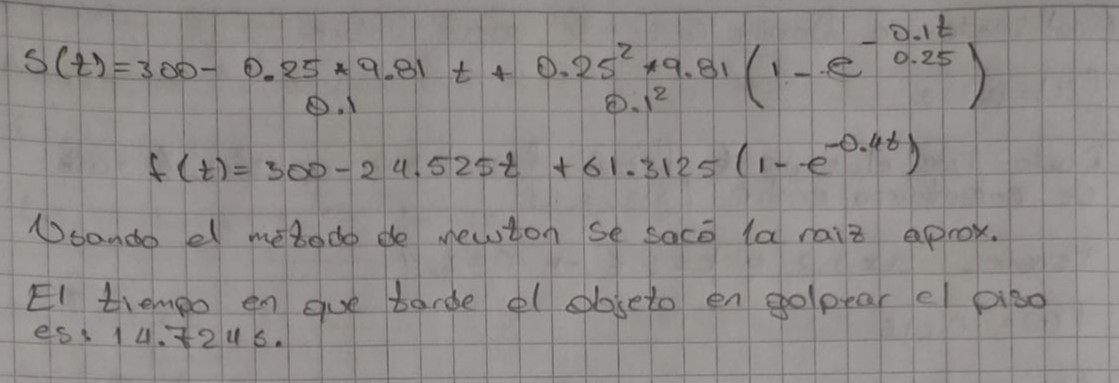 S(t)=300- 0.25*9.81/0.1 t + 0.25²*9.81/0.1² (1-e^-0.1t/0.25)
f(t)=300-24.525t +61.3125(1-e^-0.4t)
Usando el método de newton se sacó la raiz aprox.
El tiempo en que tarde el objeto en golpear el piso
es: 14.7246.